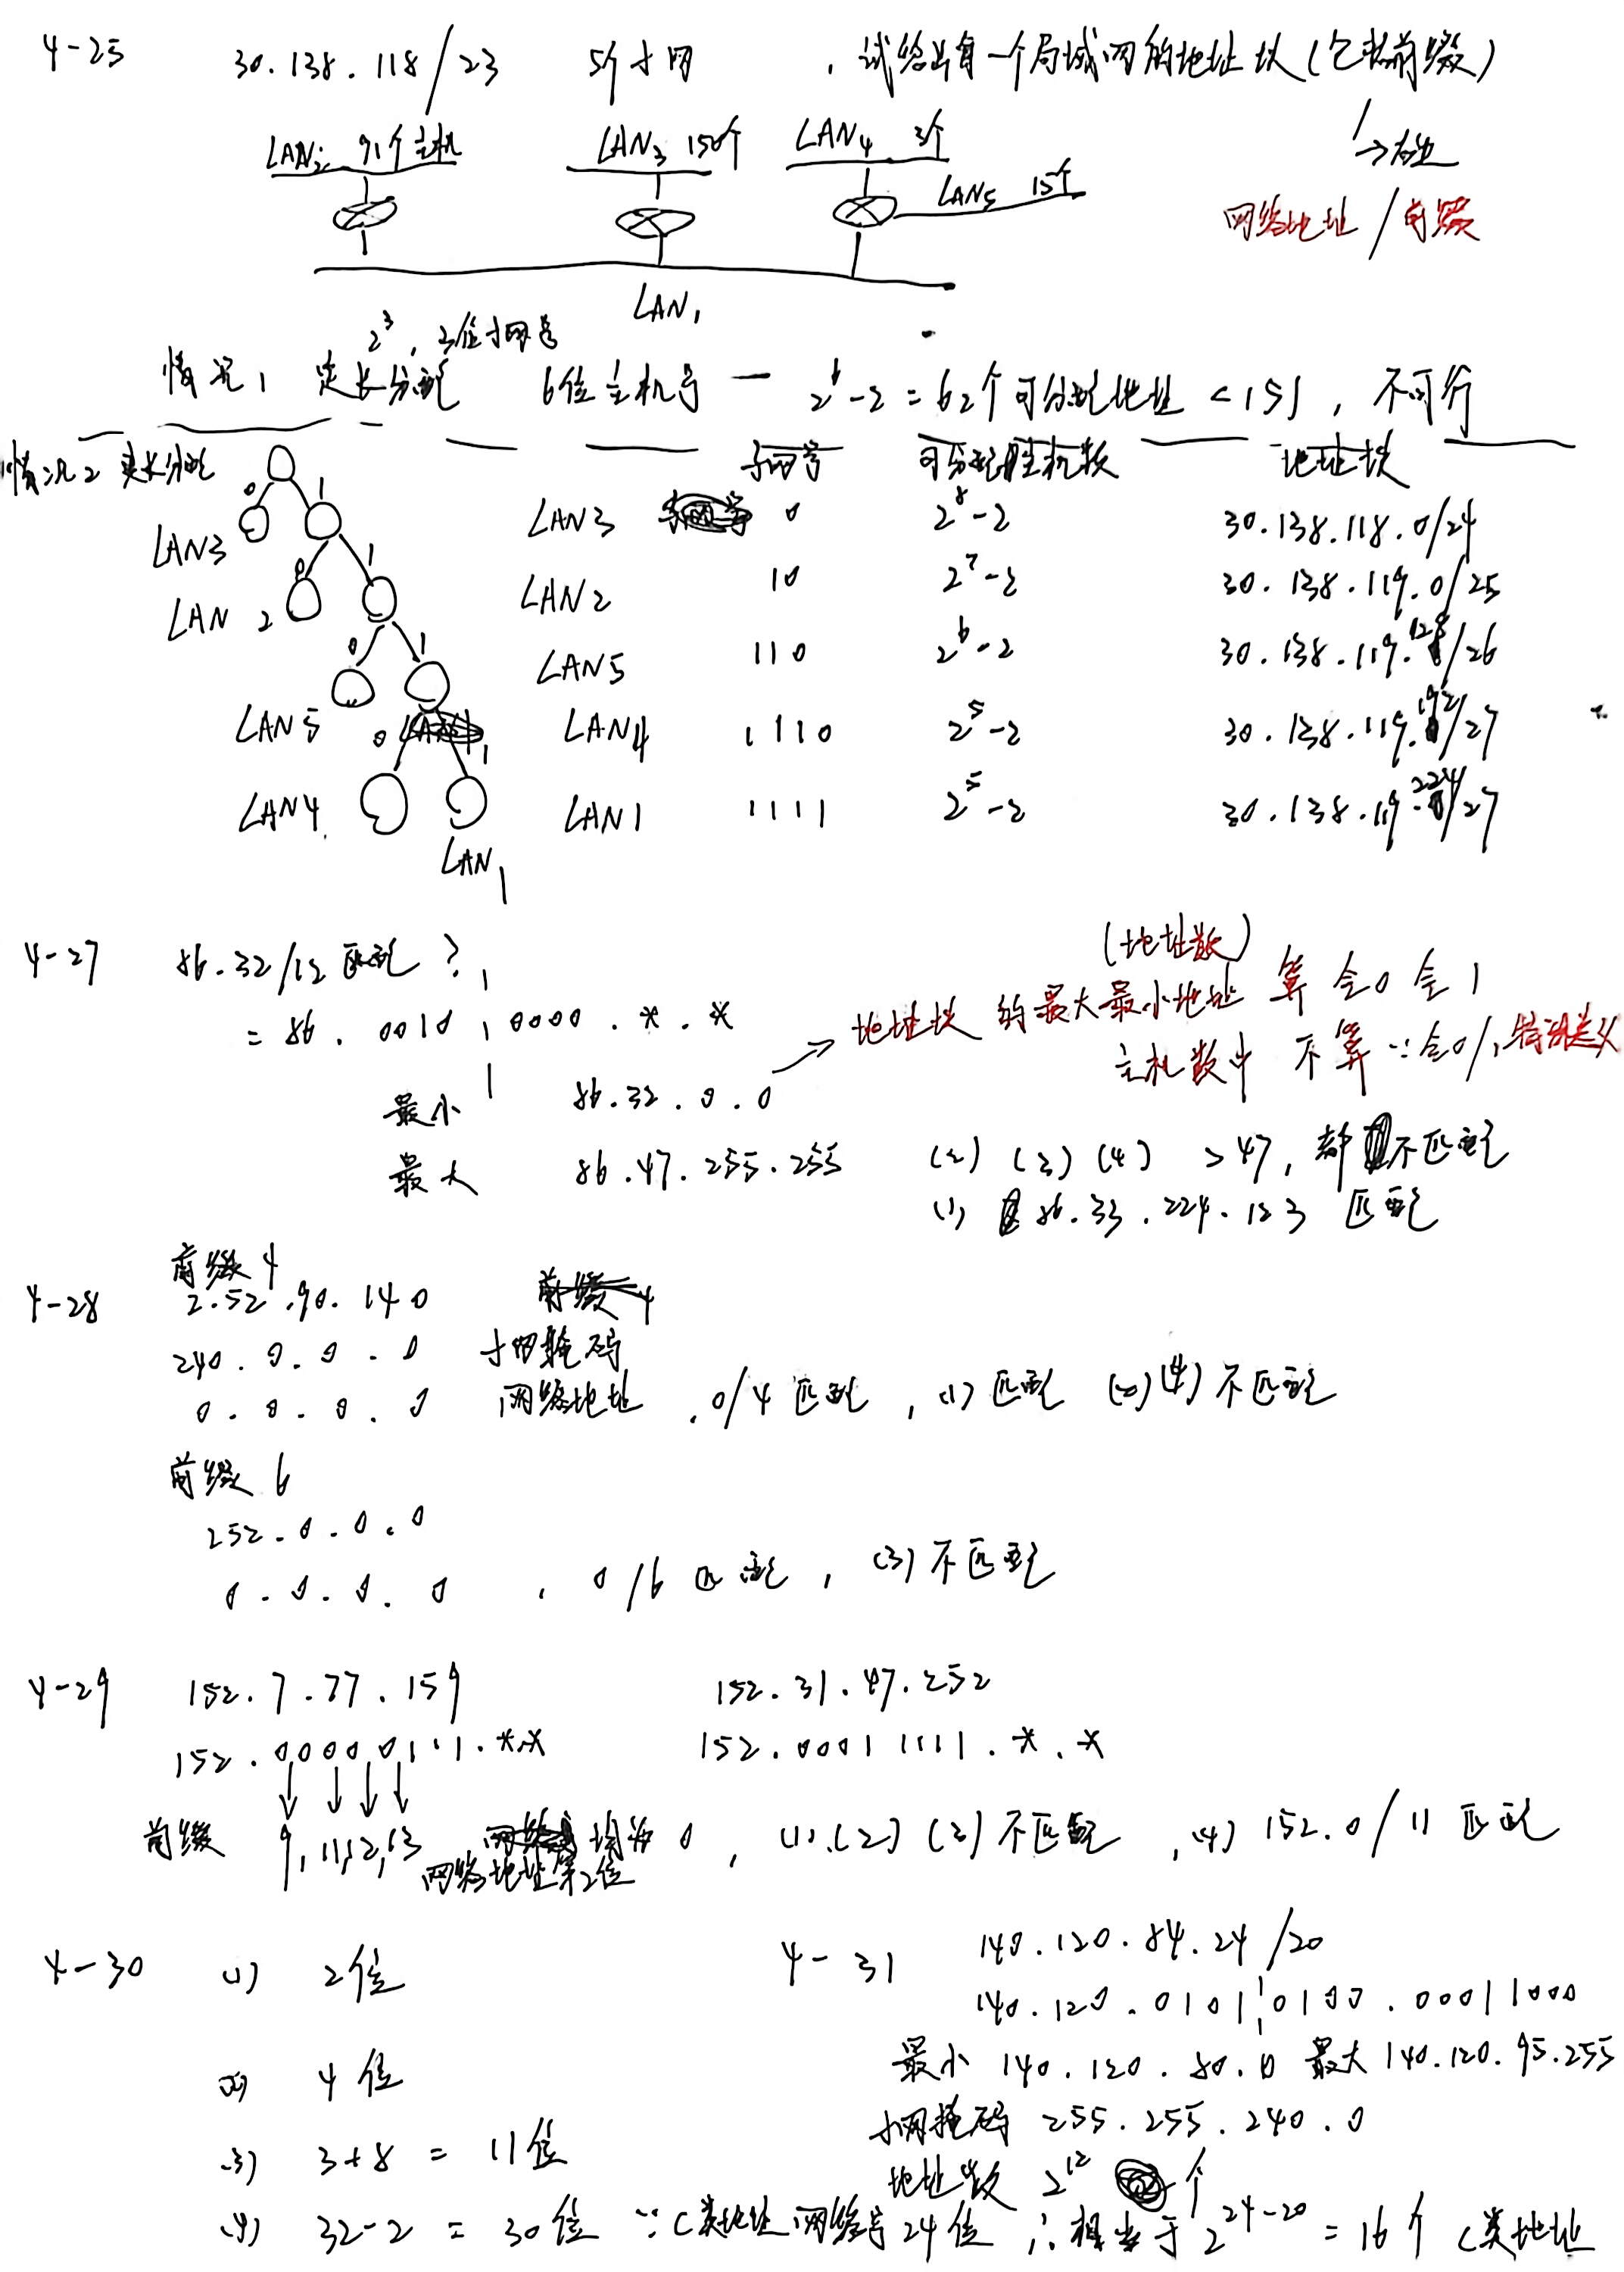 4-25 30.138.118/23 5个子网 ,试给出每一个局域网的地址块(包括前缀)
LAN2 91个主机 LAN3 150个 LAN4 3个
LAN5 15个
网络地址/前缀
LAN1
2^3,3位子网号
情况1 定长分配 6位主机号 — 2^6-2=62个可分配地址<151,不可行
情况2 变长分配 子网号 可分配主机数 地址块
0 1
LAN3 LAN3 0 2^8-2 30.138.118.0/24
0 1
LAN2 LAN2 10 2^7-2 30.138.119.0/25
0 1
LAN5 LAN5 110 2^6-2 30.138.119.128/26
0 1
LAN4 LAN4 1110 2^5-2 30.138.119.192/27
LAN1 LAN1 1111 2^5-2 30.138.119.224/27
4-27 86.32/12 匹配?
(地址数)
= 86.0010 0000.*.* → 地址块的最大最小地址 算 全0全1
主机数中 不算 ∵全0/1特殊意义
最小 86.32.0.0
最大 86.47.255.255 (2) (3) (4) >47,都不匹配
(1) 86.33.224.123 匹配
前缀4
4-28 2.52.90.140
240.0.0.0 子网掩码
0.0.0.0 网络地址 ,0/4匹配,(1)匹配 (2)(4)不匹配
前缀6
252.0.0.0
0.0.0.0 ,0/6匹配,(3)不匹配
4-29 152.7.77.159 152.31.47.252
152.00000111.*.* 152.00011111.*.*
前缀 9,11,12,13 网络地址第2位 均为0,(1).(2)(3)不匹配,(4) 152.0/11匹配
4-30 (1) 2位
(2) 4位
(3) 3+8=11位
(4) 32-2=30位
4-31 140.120.84.24/20
140.120.0101 0100.00011000
最小 140.120.80.0 最大 140.120.95.255
子网掩码 255.255.240.0
地址数 2^12个
∵C类地址网络号24位 ∴相当于2^24-20=16个C类地址